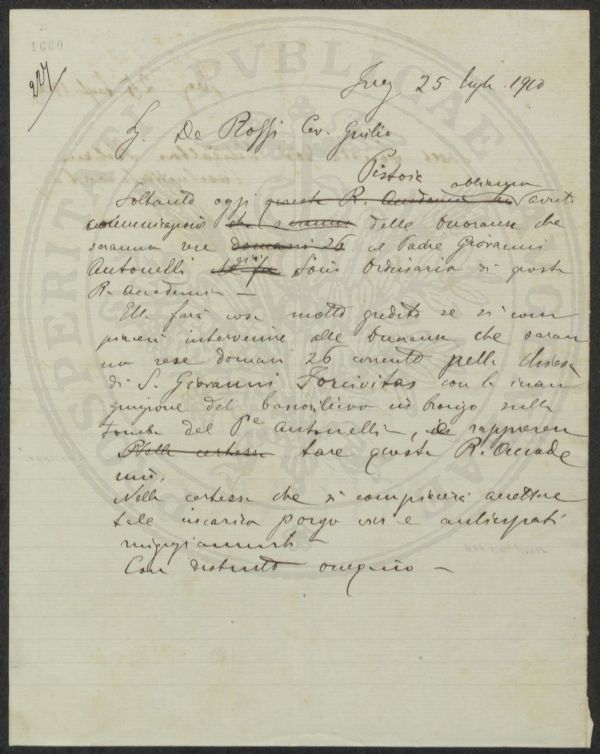 1660
227
25 luglio 1910
Sg. De Rossi Cav. Giulio
Pistoia
Soltanto oggi questa R. Accademia ha abbiamo avuto
comunicazione che saranno delle onoranze che
saranno rese domani 26 al Padre Giovanni
Antonelli già Socio Ordinario di questa
R. Accademia —
Ella farà cosa molto gradita se si com
piacerà intervenire alle onoranze che saran
no rese domani 26 corrente nella chiesa
di S. Giovanni Forcivitas con la inau
gurazione del bassorilievo in bronzo sulla
tomba del Pe Antonelli, e rappresen
Nella certezza tare questa R. Accade
mia.
Nella certezza che si compiacerà accettare
tale incarico porgo vivi e anticipati
ringraziamenti —
Con distinto ossequio —